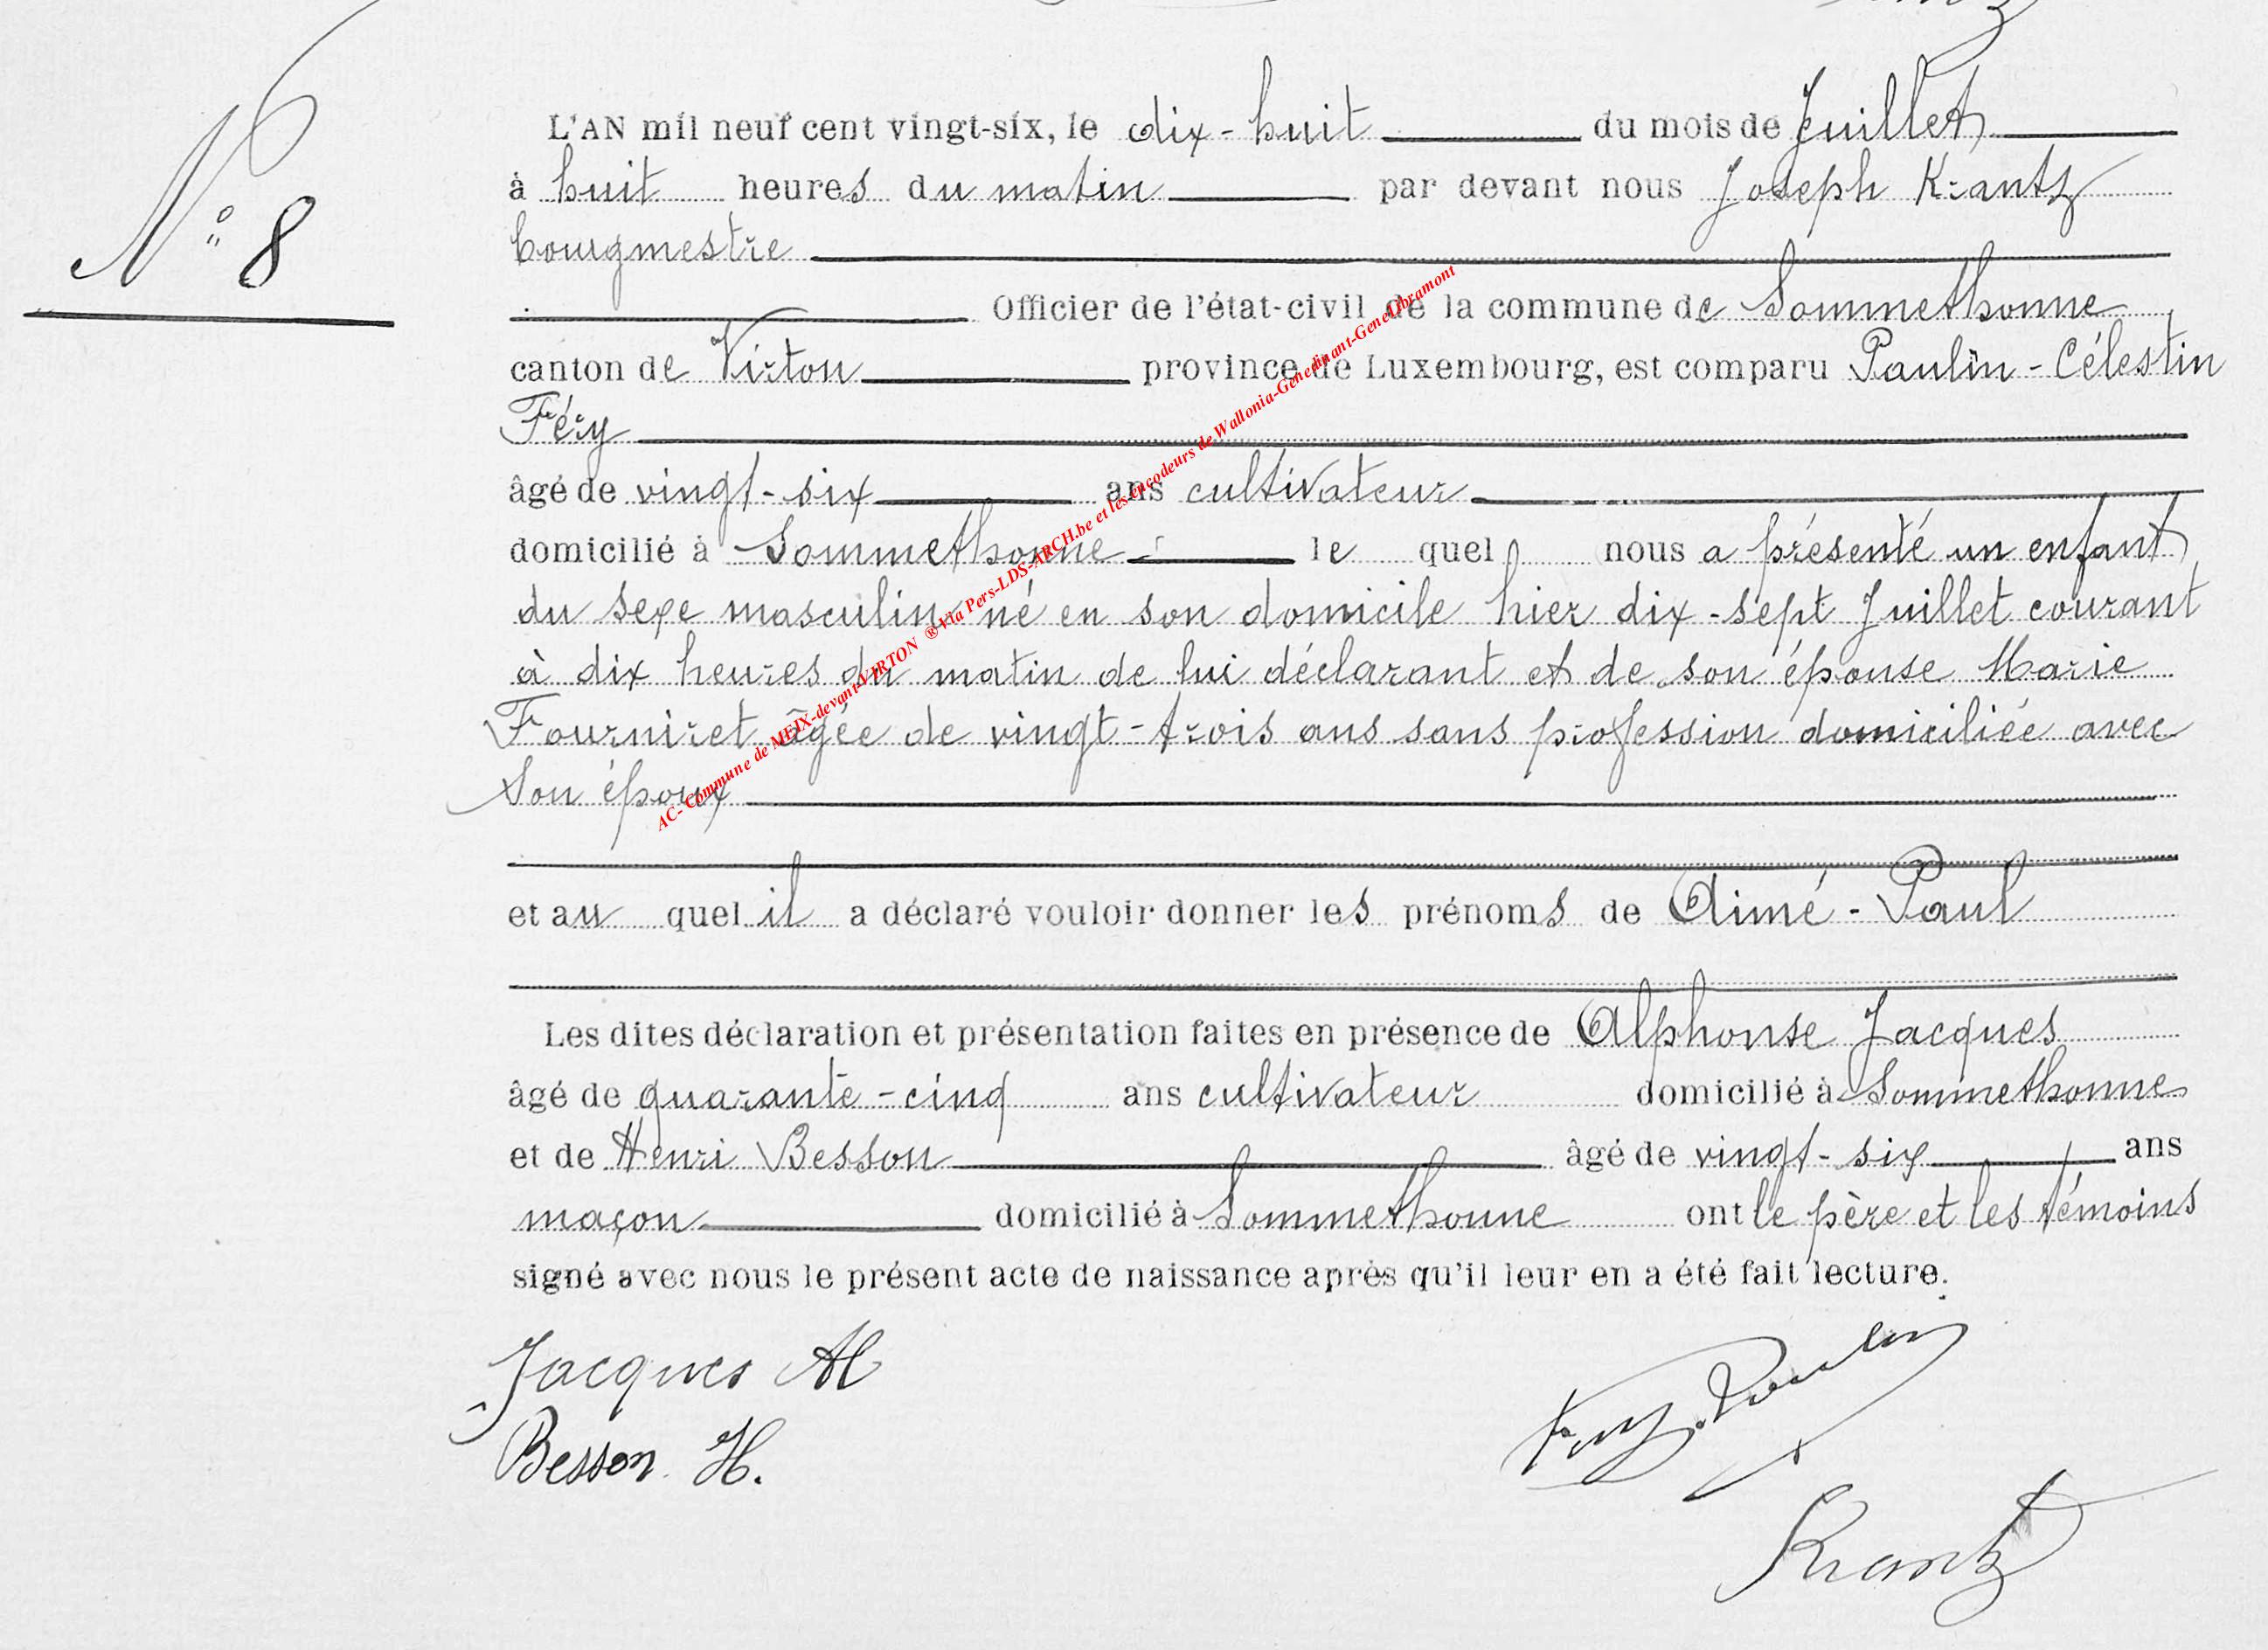 N° 8
L'AN mil neuf cent vingt-six, le dix-huit du mois de Juillet
à huit heures du matin par devant nous Joseph Krantz
bourgmestre
Officier de l'état-civil de la commune de Sommethonne
canton de Virton province de Luxembourg, est comparu Paulin-Célestin
Féry
âgé de vingt-six ans cultivateur
domicilié à Sommethonne le quel nous a présenté un enfant
du sexe masculin né en son domicile hier dix-sept Juillet courant
à dix heures du matin de lui déclarant et de son épouse Marie
Fourniret âgée de vingt-trois ans sans profession domiciliée avec
son époux
et au quel il a déclaré vouloir donner les prénoms de Aimé-Paul
Les dites déclaration et présentation faites en présence de Alphonse Jacques
âgé de quarante-cinq ans cultivateur domicilié à Sommethonne
et de Henri Besson âgé de vingt-six ans
maçon domicilié à Sommethonne ont le père et les témoins
signé avec nous le présent acte de naissance après qu'il leur en a été fait lecture.
Jacques Al
Besson H.
Fery Paulin
Krantz
AC- Commune de MEIX-devant-VIRTON ® Via Pers-LDS-ARCH.be et les encodeurs de Wallonia-Genedinant-GeneLibramont